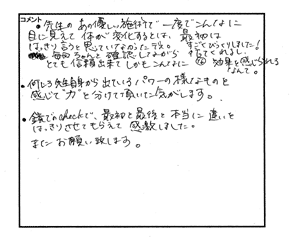 コメント
・先生のあの優しい施術で一度でこんなに
目に見えて体が変化するとは、最初は
はっきり言うと思っていなかったです。すごくびっくりしました!
毎回ちゃんと確認しながら施てくれるし、
とても信頼出来てしかもこんなに効果を感じられる
なんて。
・何しろ先生自身から出ているパワーの様なものと
感じて"力"を分けて頂いた気がします。
・鏡でcheckで、最初と最後と本当に違いを
はっきりさせてもらえて感激しました。
またお願い致します。